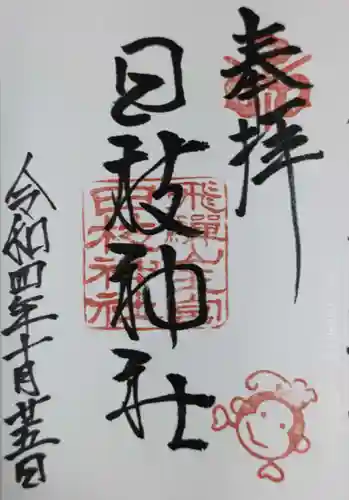 奉拝
日枝神社
飛騨山王宮
日枝神社
令和四年十月廿五日